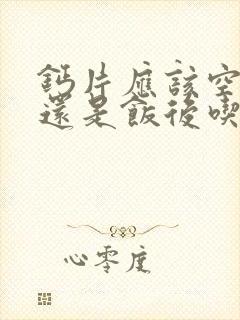 鈣片應該空
還是飯後喫
心零度